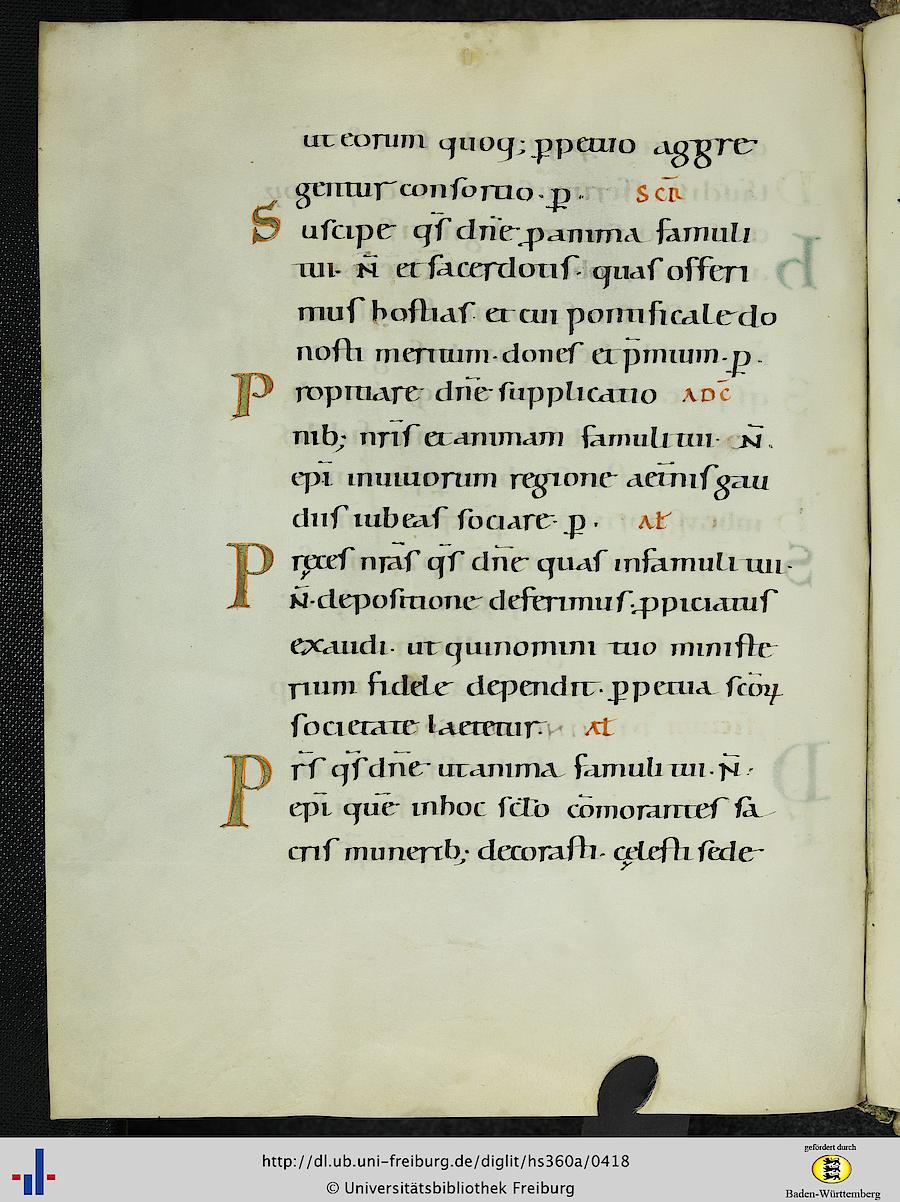 ut eorum quoq; ꝑpetuo aggre
gentur consortio. ꝑ. SCR̄
Suscipe qs̄ dn̄e ꝓ anima famuli
tui. N̄ et sacerdotis. quas offeri
mus hostias. et cui pontificale do
nasti meritum. dones et p̄mium. ꝑ.
Propitiare dn̄e supplicatio AD C̄
nib; nr̄is et animam famuli tui. N̄.
epī in uiuorum regione aet̄nis gau
diis iubeas sociare. ꝑ. Aƚ
Pręces nr̄as qs̄ dn̄e quas in famuli tui.
N̄. depositione deferimus. ꝓpiciatus
exaudi. ut qui nomini tuo ministe
rium fidele dependit. ꝑpetua sc̄oꝝ
societate laetetur. Aƚ
Pr̄s qs̄ dn̄e ut anima famuli tui. N̄.
epī que᷑ in hoc sc̄lo cōmorantes sa
cris munerib; decorasti. cęlesti sede
http://dl.ub.uni-freiburg.de/diglit/hs360a/0418
© Universitätsbibliothek Freiburg
gefördert durch
Baden-Württemberg